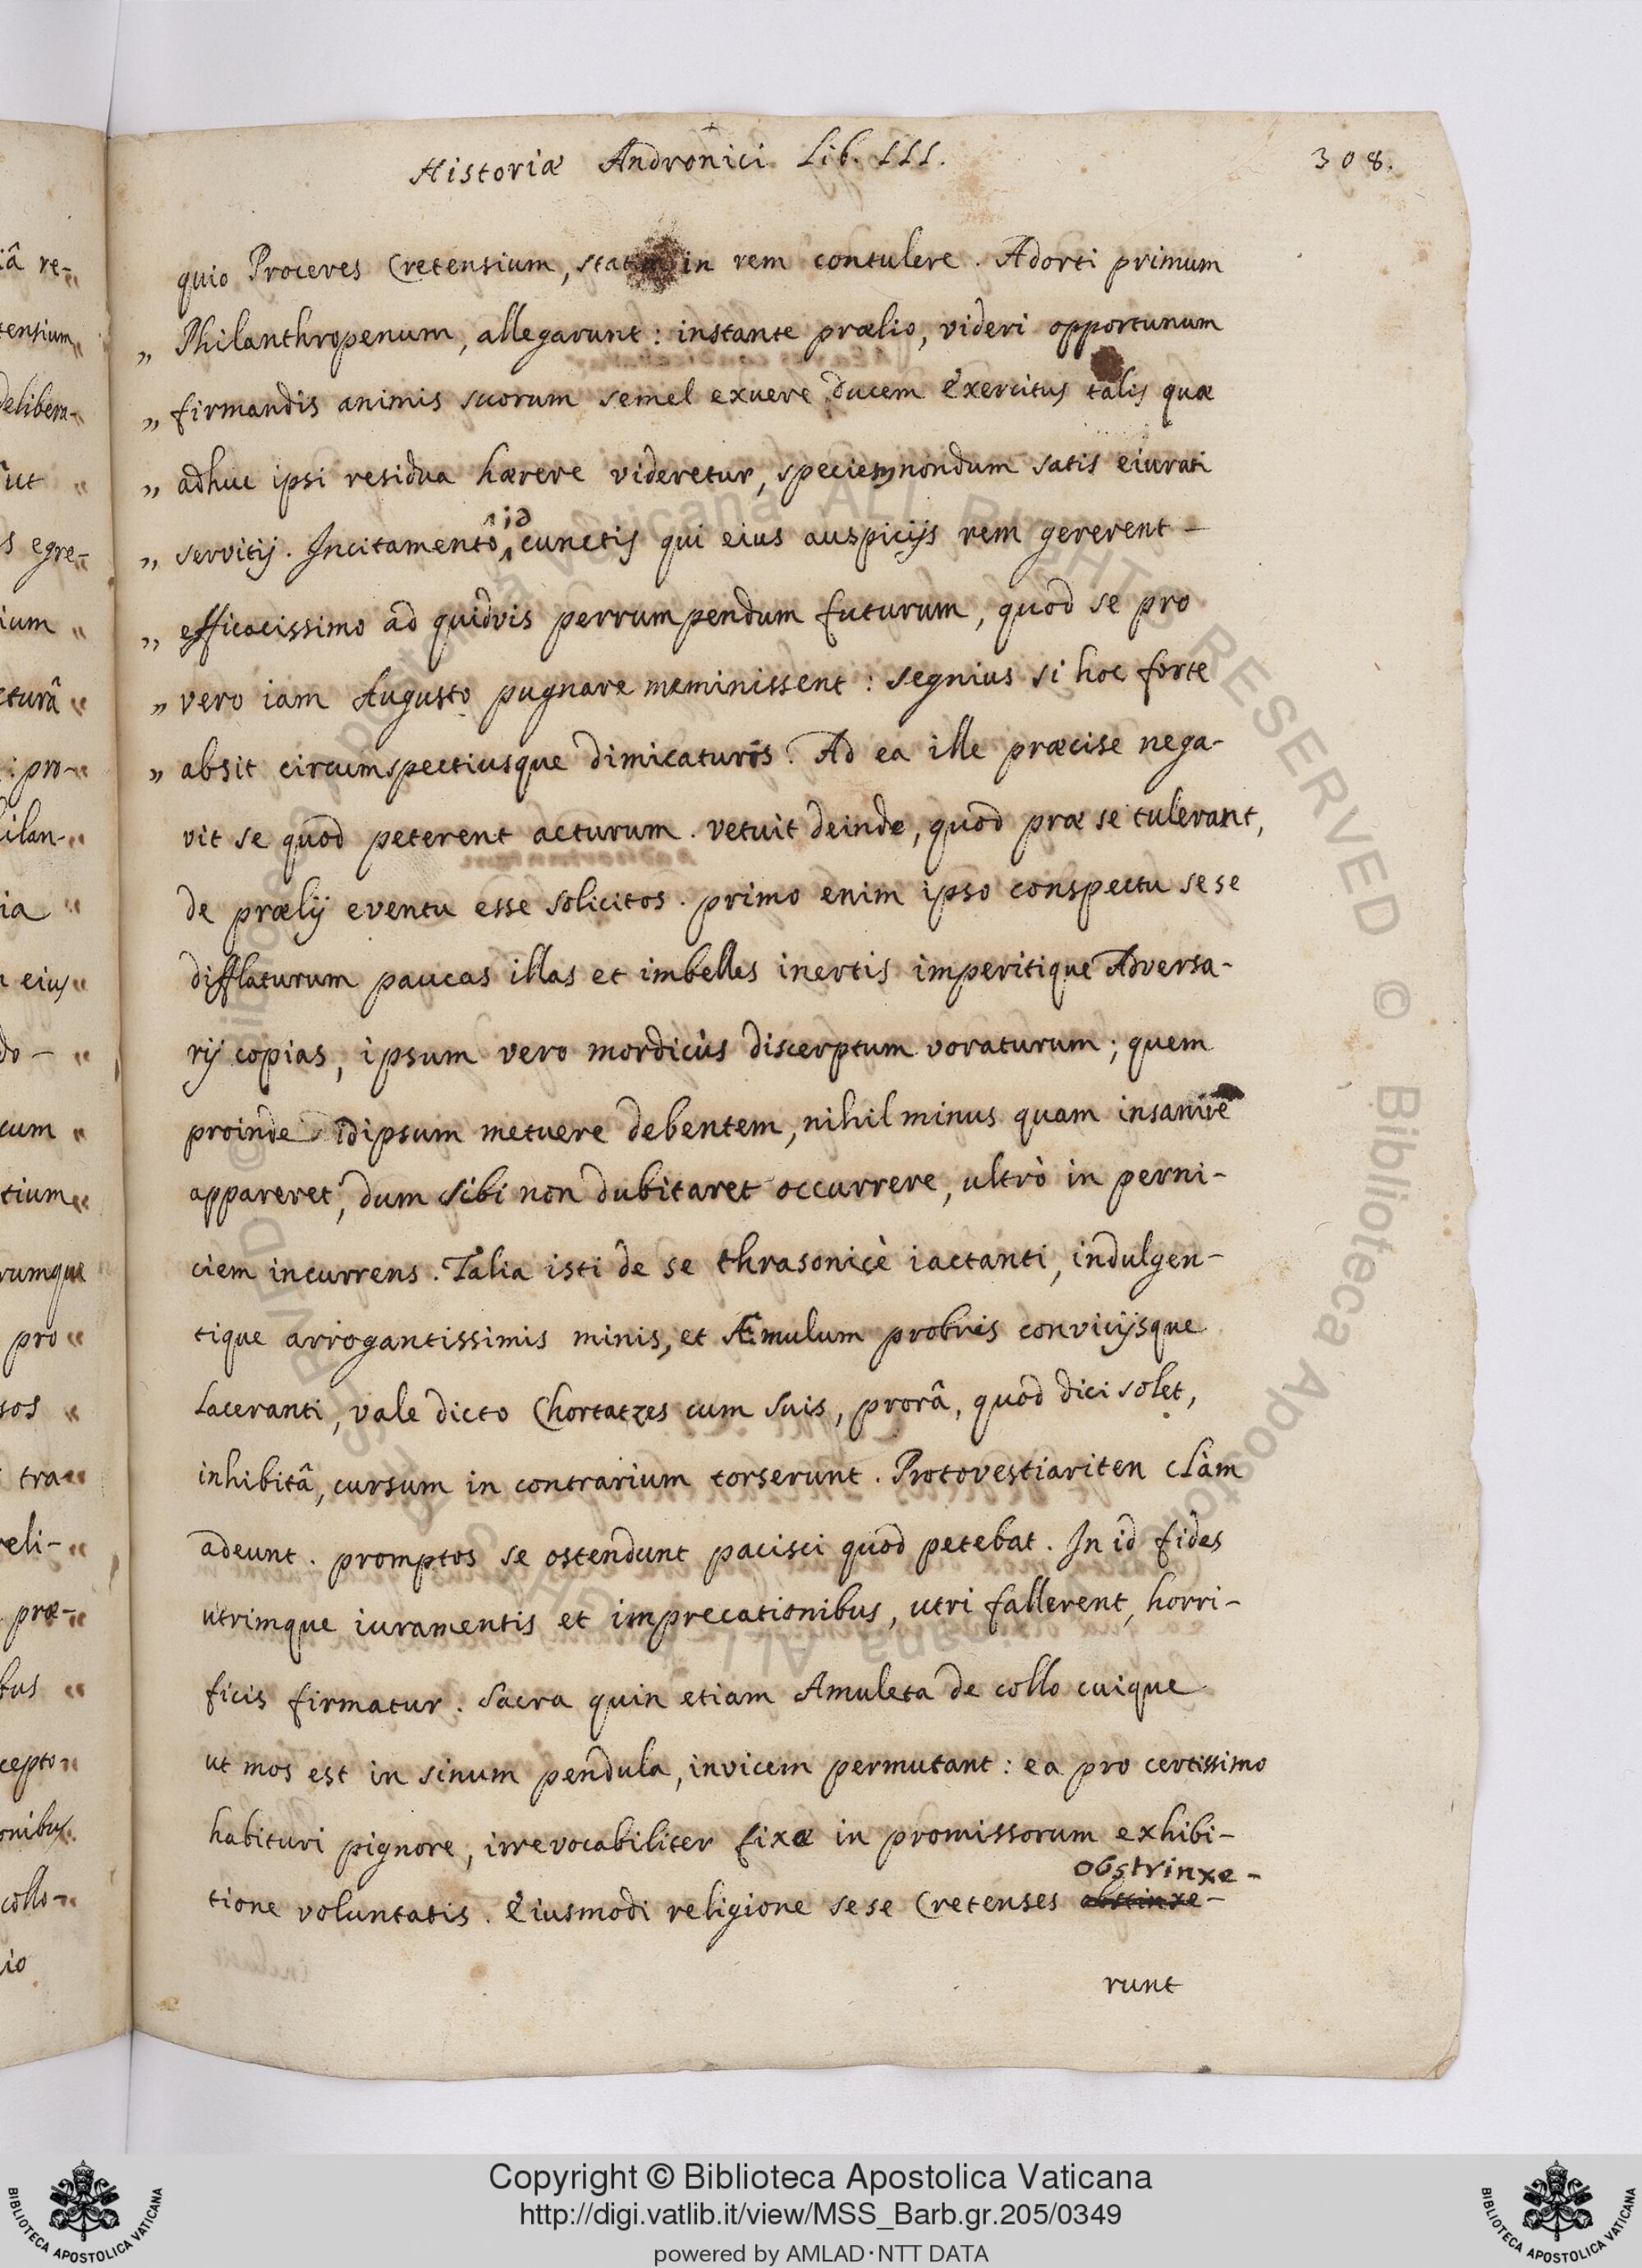 Historiæ Andronici Lib. III.
308.
quio Proceres Cretensium, statim in rem contulere. Adorti primum
„ Philanthropenum, allegarunt: instante prælio, videri opportunum
„ firmandis animis suorum semel exuere ducem exercitus talis quæ
„ adhuc ipsi residua hærere videretur, speciem nondum satis eiurati
„ servitij. Incitamento id cunctis qui eius auspicijs rem gererent —
„ efficacissimo ad quidvis perrumpendum futurum, quod se pro
„ vero iam Augusto pugnare meminissent: segnius si hoc forte
„ absit circumspectiusque dimicaturos. Ad ea ille præcise nega-
vit se quod peterent acturum. vetuit deinde, quod præ se tulerant,
de prælij eventu esse solicitos. primo enim ipso conspectu sese
difflaturum paucas illas et imbelles inertis imperitique Adversa-
rij copias, ipsum vero mordicùs discerptum voraturum; quem
proinde idipsum metuere debentem, nihil minus quam insanire
appareret, dum sibi non dubitaret occurrere, ultrò in perni-
ciem incurrens. Talia isti de se thrasonicè iactanti, indulgen-
tique arrogantissimis minis, et Æmulum probris convicijsque
laceranti, vale dicto Chortatzes cum suis, prorâ, quod dici solet,
inhibitâ, cursum in contrarium torserunt. Protovestiariten clàm
adeunt. promptos se ostendunt pacisci quod petebat. In id fides
utrimque iuramentis et imprecationibus, utri fallerent, horri-
ficis firmatur. Sacra quin etiam Amuleta de collo cuique
ut mos est in sinum pendula, invicem permutant: ea pro certissimo
habituri pignore, irrevocabiliter fixæ in promissorum exhibi-
obstrinxe-
tione voluntatis. Eiusmodi religione sese Cretenses abstinxe-
runt
iâ re-
tensium
delibera-
ut
s egre-
ium
cturâ
: pro-
ilan-
ia
eius
do —
cum
tium
rumque
pro
sos
tra-
reli-
præ-
bus
cepto
onibus
collo-
io
Copyright © Biblioteca Apostolica Vaticana
http://digi.vatlib.it/view/MSS_Barb.gr.205/0349
powered by AMLAD·NTT DATA
BIBLIOTECA APOSTOLICA VATICANA
BIBLIOTECA APOSTOLICA VATICANA